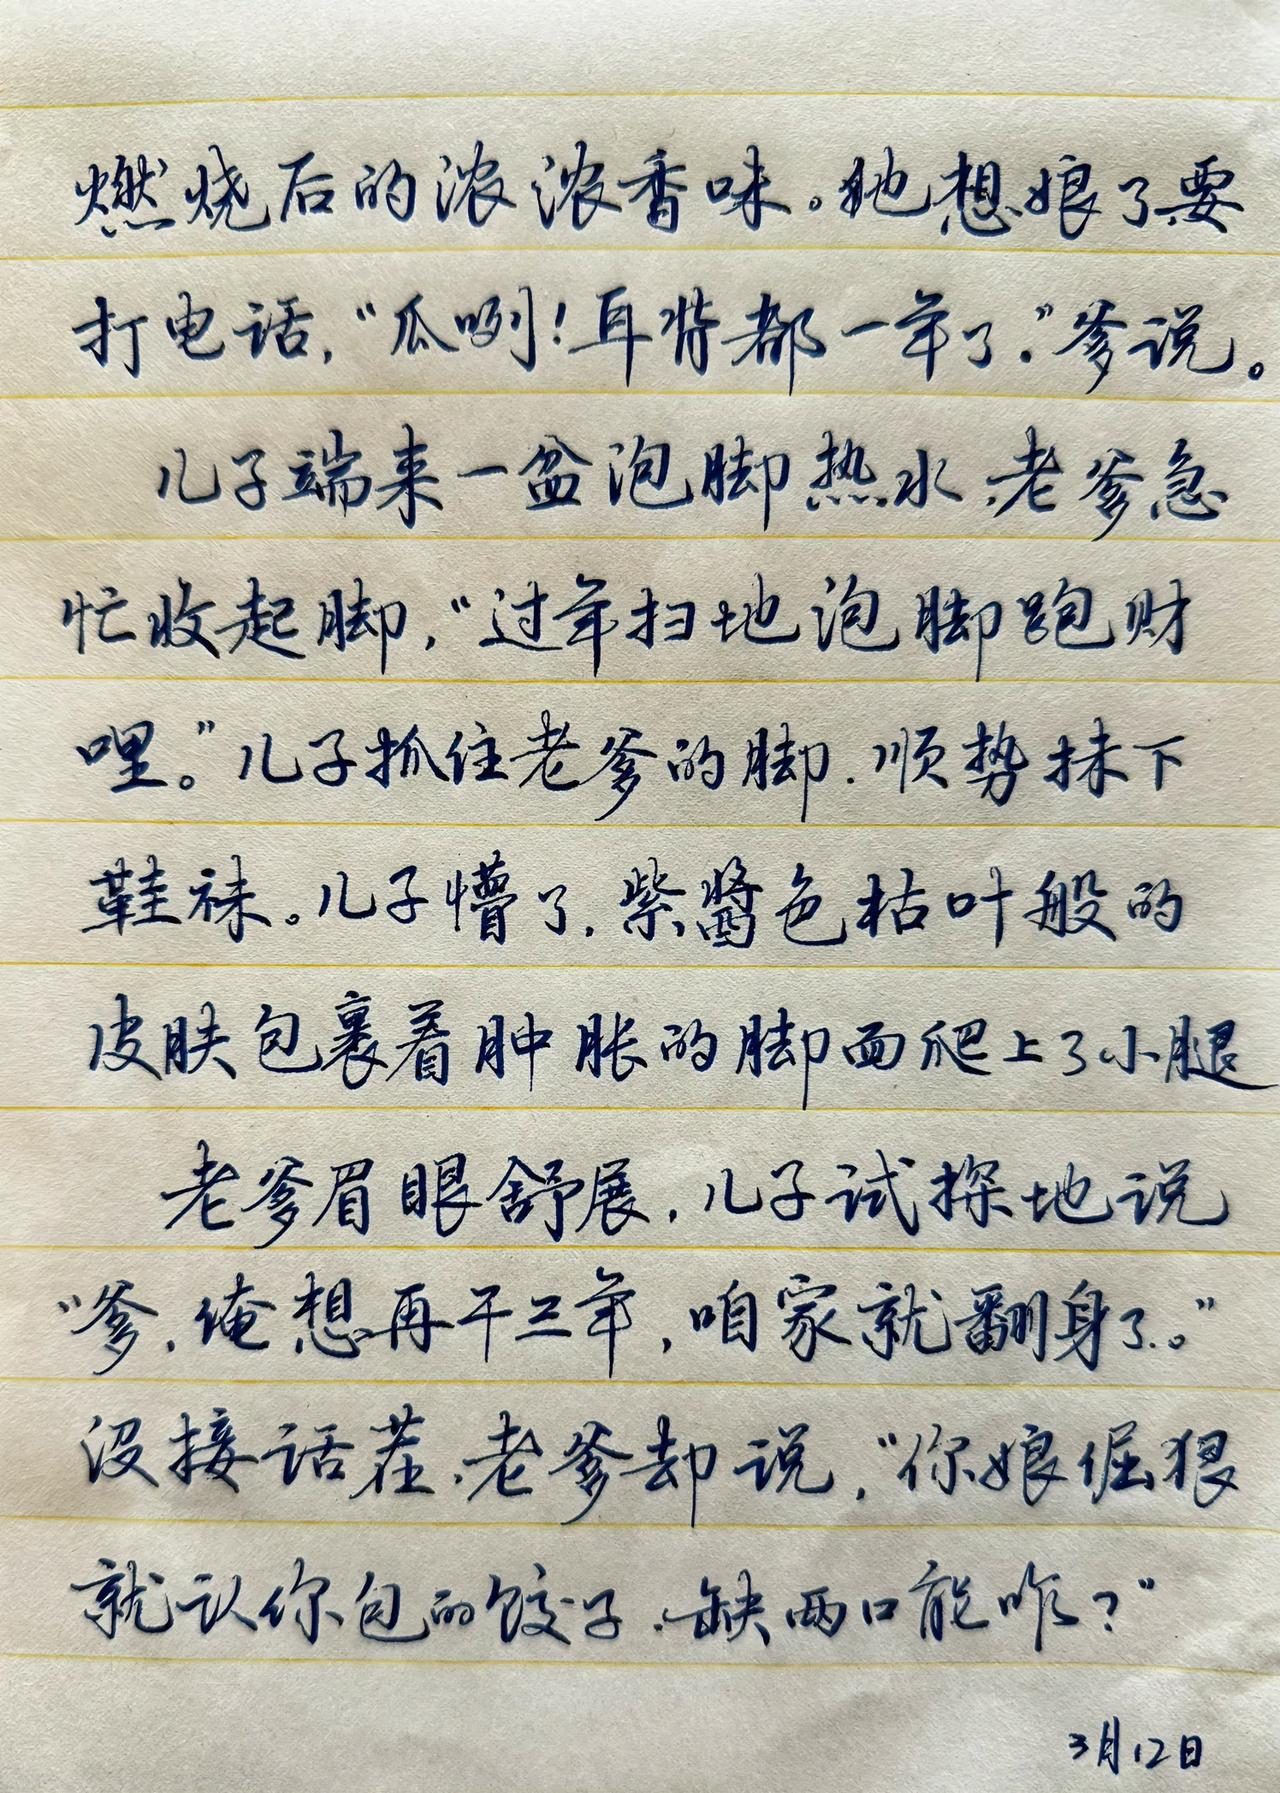 燃烧后的浓浓香味。她想娘了要
打电话，“瓜咧！耳背都一年了。”爹说。
儿子端来一盆泡脚热水，老爹急
忙收起脚，“过年扫地泡脚跑财
哩。”儿子抓住老爹的脚，顺势抹下
鞋袜。儿子懵了，紫酱色枯叶般的
皮肤包裹着肿胀的脚面爬上了小腿
老爹眉眼舒展，儿子试探地说
“爹，俺想再干三年，咱家就翻身了。”
没接话茬，老爹却说，“你娘倔狠
就认你包的饺子，缺两口能咋？”
3月12日